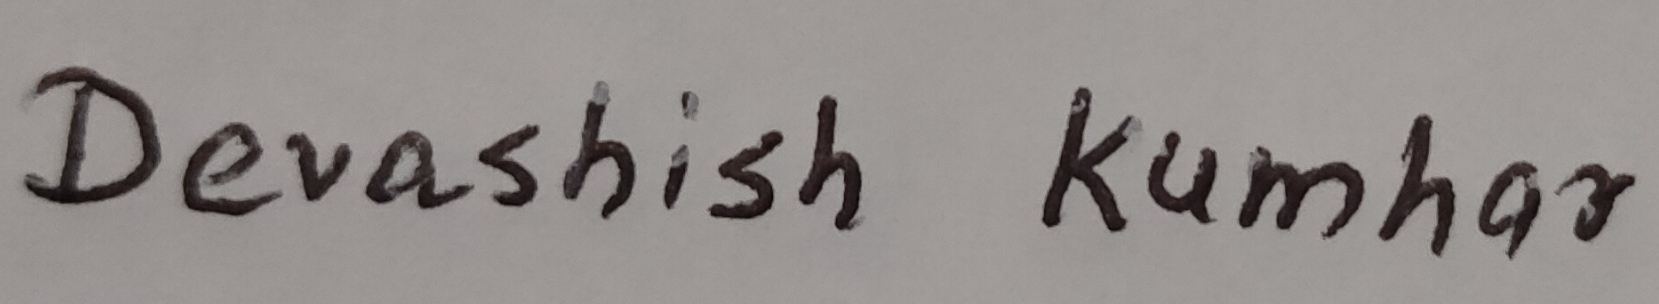 Devashish Kumhar